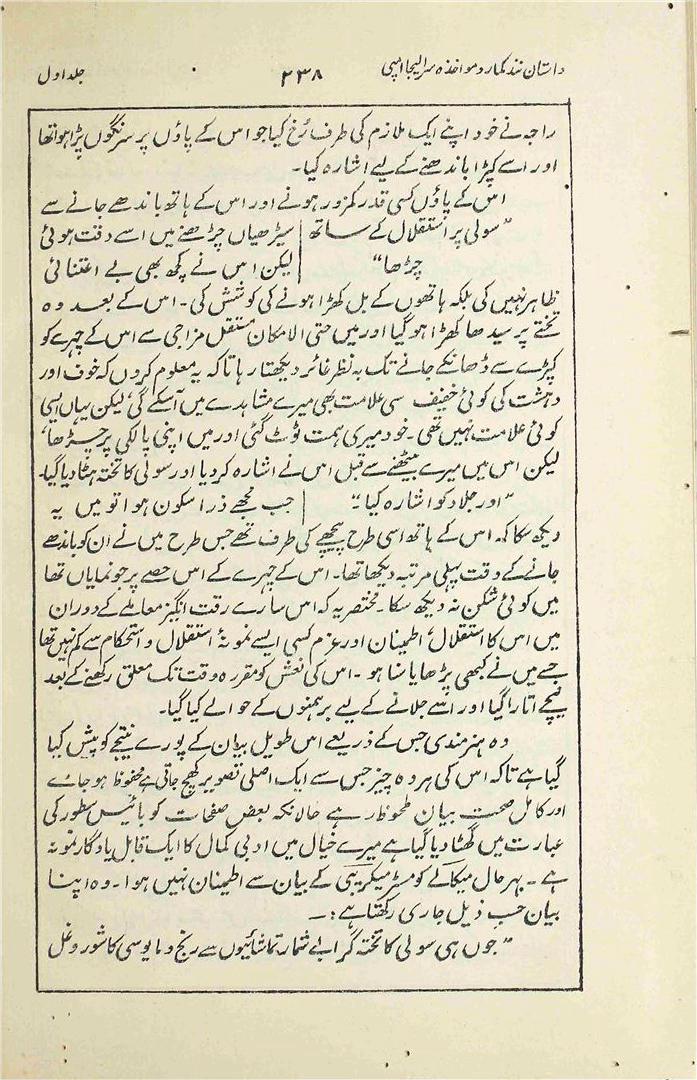 داستان نند کمار و مواخذہ سر الیجا امپی ۲۳۸ جلد اول
راجہ نے خود اپنے ایک ملازم کی طرف رُخ کیا جو اس کے پاؤں پر سرنگوں پڑا ہوا تھا
اور اسے کپڑا باندھنے کے لیے اشارہ کیا۔
اس کے پاؤں کسی قدر کمزور ہونے اور اس کے ہاتھ باندھے جانے سے
”سولی پر استقلال کے ساتھ سیڑھیاں چڑھنے میں اسے دقت ہوئی
چڑھا“ لیکن اس نے کچھ بھی بے اعتنائی
ظاہر نہیں کی بلکہ ہاتھوں کے بل کھڑا ہونے کی کوشش کی۔ اس کے بعد وہ
تختے پر سیدھا کھڑا ہو گیا اور میں حتی الامکان مستقل مزاجی سے اس کے چہرے کو
کپڑے سے ڈھانکے جانے تک بہ نظر غائر دیکھتا رہا تاکہ یہ معلوم کروں کہ خوف اور
دہشت کی کوئی خفیف سی علامت بھی میرے مشاہدے میں آسکے گی، لیکن یہاں ایسی
کوئی علامت نہیں تھی۔ خود میری ہمت ٹوٹ گئی اور میں اپنی پالکی پر چڑھا،
لیکن اس میں میرے بیٹھنے سے قبل اس نے اشارہ کر دیا اور سولی کا تختہ ہٹا دیا گیا۔
”اور جلاد کو اشارہ کیا۔“ جب مجھے ذرا سکون ہوا تو میں یہ
دیکھ سکا کہ اس کے ہاتھ اسی طرح پیچھے کی طرف تھے جس طرح میں نے ان کو باندھے
جانے کے وقت پہلی مرتبہ دیکھا تھا۔ اس کے چہرے کے اس حصے پر جو نمایاں تھا
میں کوئی شکن نہ دیکھ سکا۔ مختصر یہ کہ اس سارے رقت انگیز معاملے کے دوران
میں اس کا استقلال، اطمینان اور عزم کسی ایسے نمونۂ استقلال و استحکام سے کم نہیں تھا
جسے میں نے کبھی پڑھا یا سنا ہو۔ اس کی نعش کو مقررہ وقت تک معلق رکھنے کے بعد
نیچے اتارا گیا اور اسے جلانے کے لیے برہمنوں کے حوالے کیا گیا۔
وہ ہنرمندی جس کے ذریعے اس طویل بیان کے پورے نتیجے کو پیش کیا
گیا ہے تاکہ اس کی ہر وہ چیز جس سے ایک اصلی تصویر کھچ جاتی ہے محفوظ ہو جائے
اور کامل صحت بیان ملحوظ رہے حالانکہ بعض صفحات کو بائیس سطور کی
عبارت میں گھٹا دیا گیا ہے میرے خیال میں ادبی کمال کا ایک قابل یادگار نمونہ
ہے۔ بہر حال میکالے کو مسٹر میکریبی کے بیان سے اطمینان نہیں ہوا۔ وہ اپنا
بیان حسب ذیل جاری رکھتا ہے:۔
”جوں ہی سولی کا تختہ گرا بے شمار تماشائیوں سے رنج و مایوسی کا شور و غل